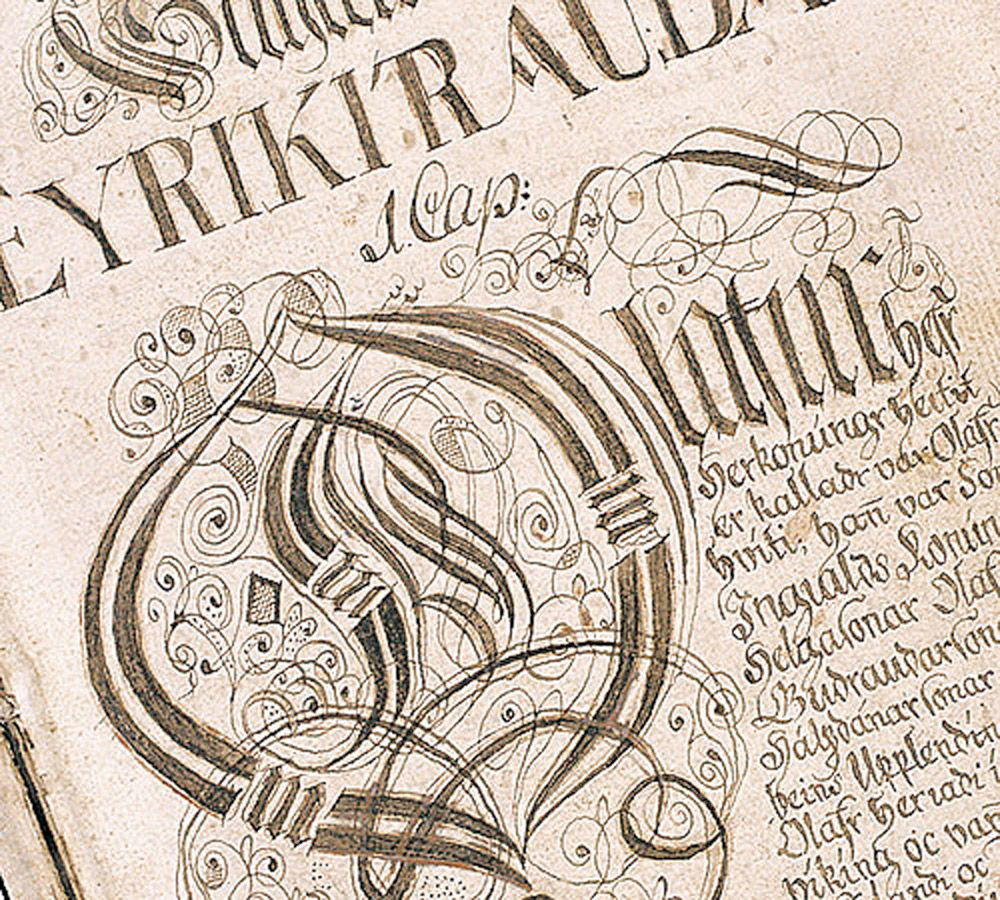 EYRIKI RAUDA
1. Cap:
Olafur
het
Herkonungr
er kalladr var Olafr
hviti, hañ var Son
Ingialds Konun
Helgasonar Olaf
Gudraudarson
Hálfdánar sonar
beins Upplendin
Olafr heriadi i
viking oc van